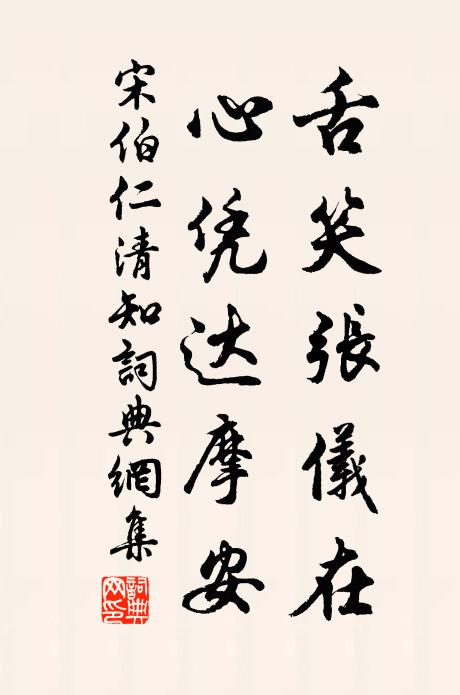 舌笑張儀在
心凭达摩安
宋伯仁清知詞典網集
詞典网印